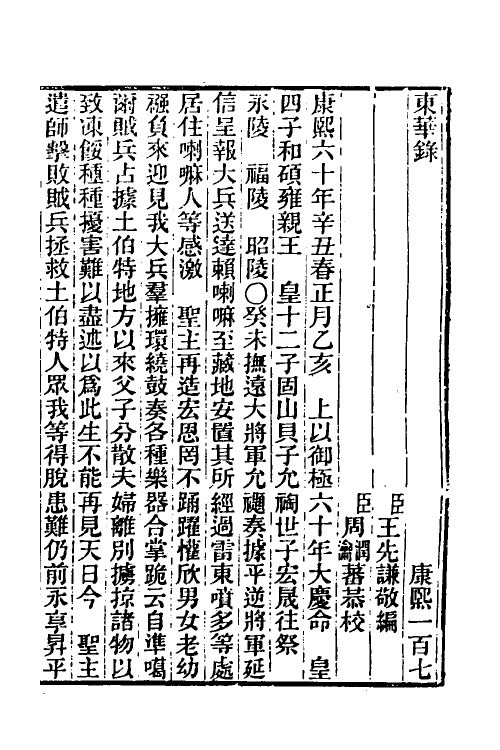 東華錄　康熙一百七
臣王先謙敬編
臣周潤蕃周瀹蕃恭校
康熙六十年辛丑春正月乙亥　上以御極六十年大慶命　皇
四子和碩雍親王　皇十二子固山貝子允祹世子宏晟往祭
永陵　福陵　昭陵〇癸未撫遠大將軍允禵奏據平逆將軍延
信呈報大兵送達賴喇嘛至藏地安置其所經過雷東噴多等處
居住喇嘛人等感激　聖主再造宏恩罔不踊躍懽欣男女老幼
襁負來迎見我大兵羣擁環繞鼓奏各種樂器合掌跪云自準噶
爾賊兵占據土伯特地方以來父子分散夫婦離別擄掠諸物以
致凍餒種種擾害難以盡述以爲此生不能再見天日今　聖主
遣師擊敗賊兵拯救土伯特人眾我等得脫患難仍前永享昇平